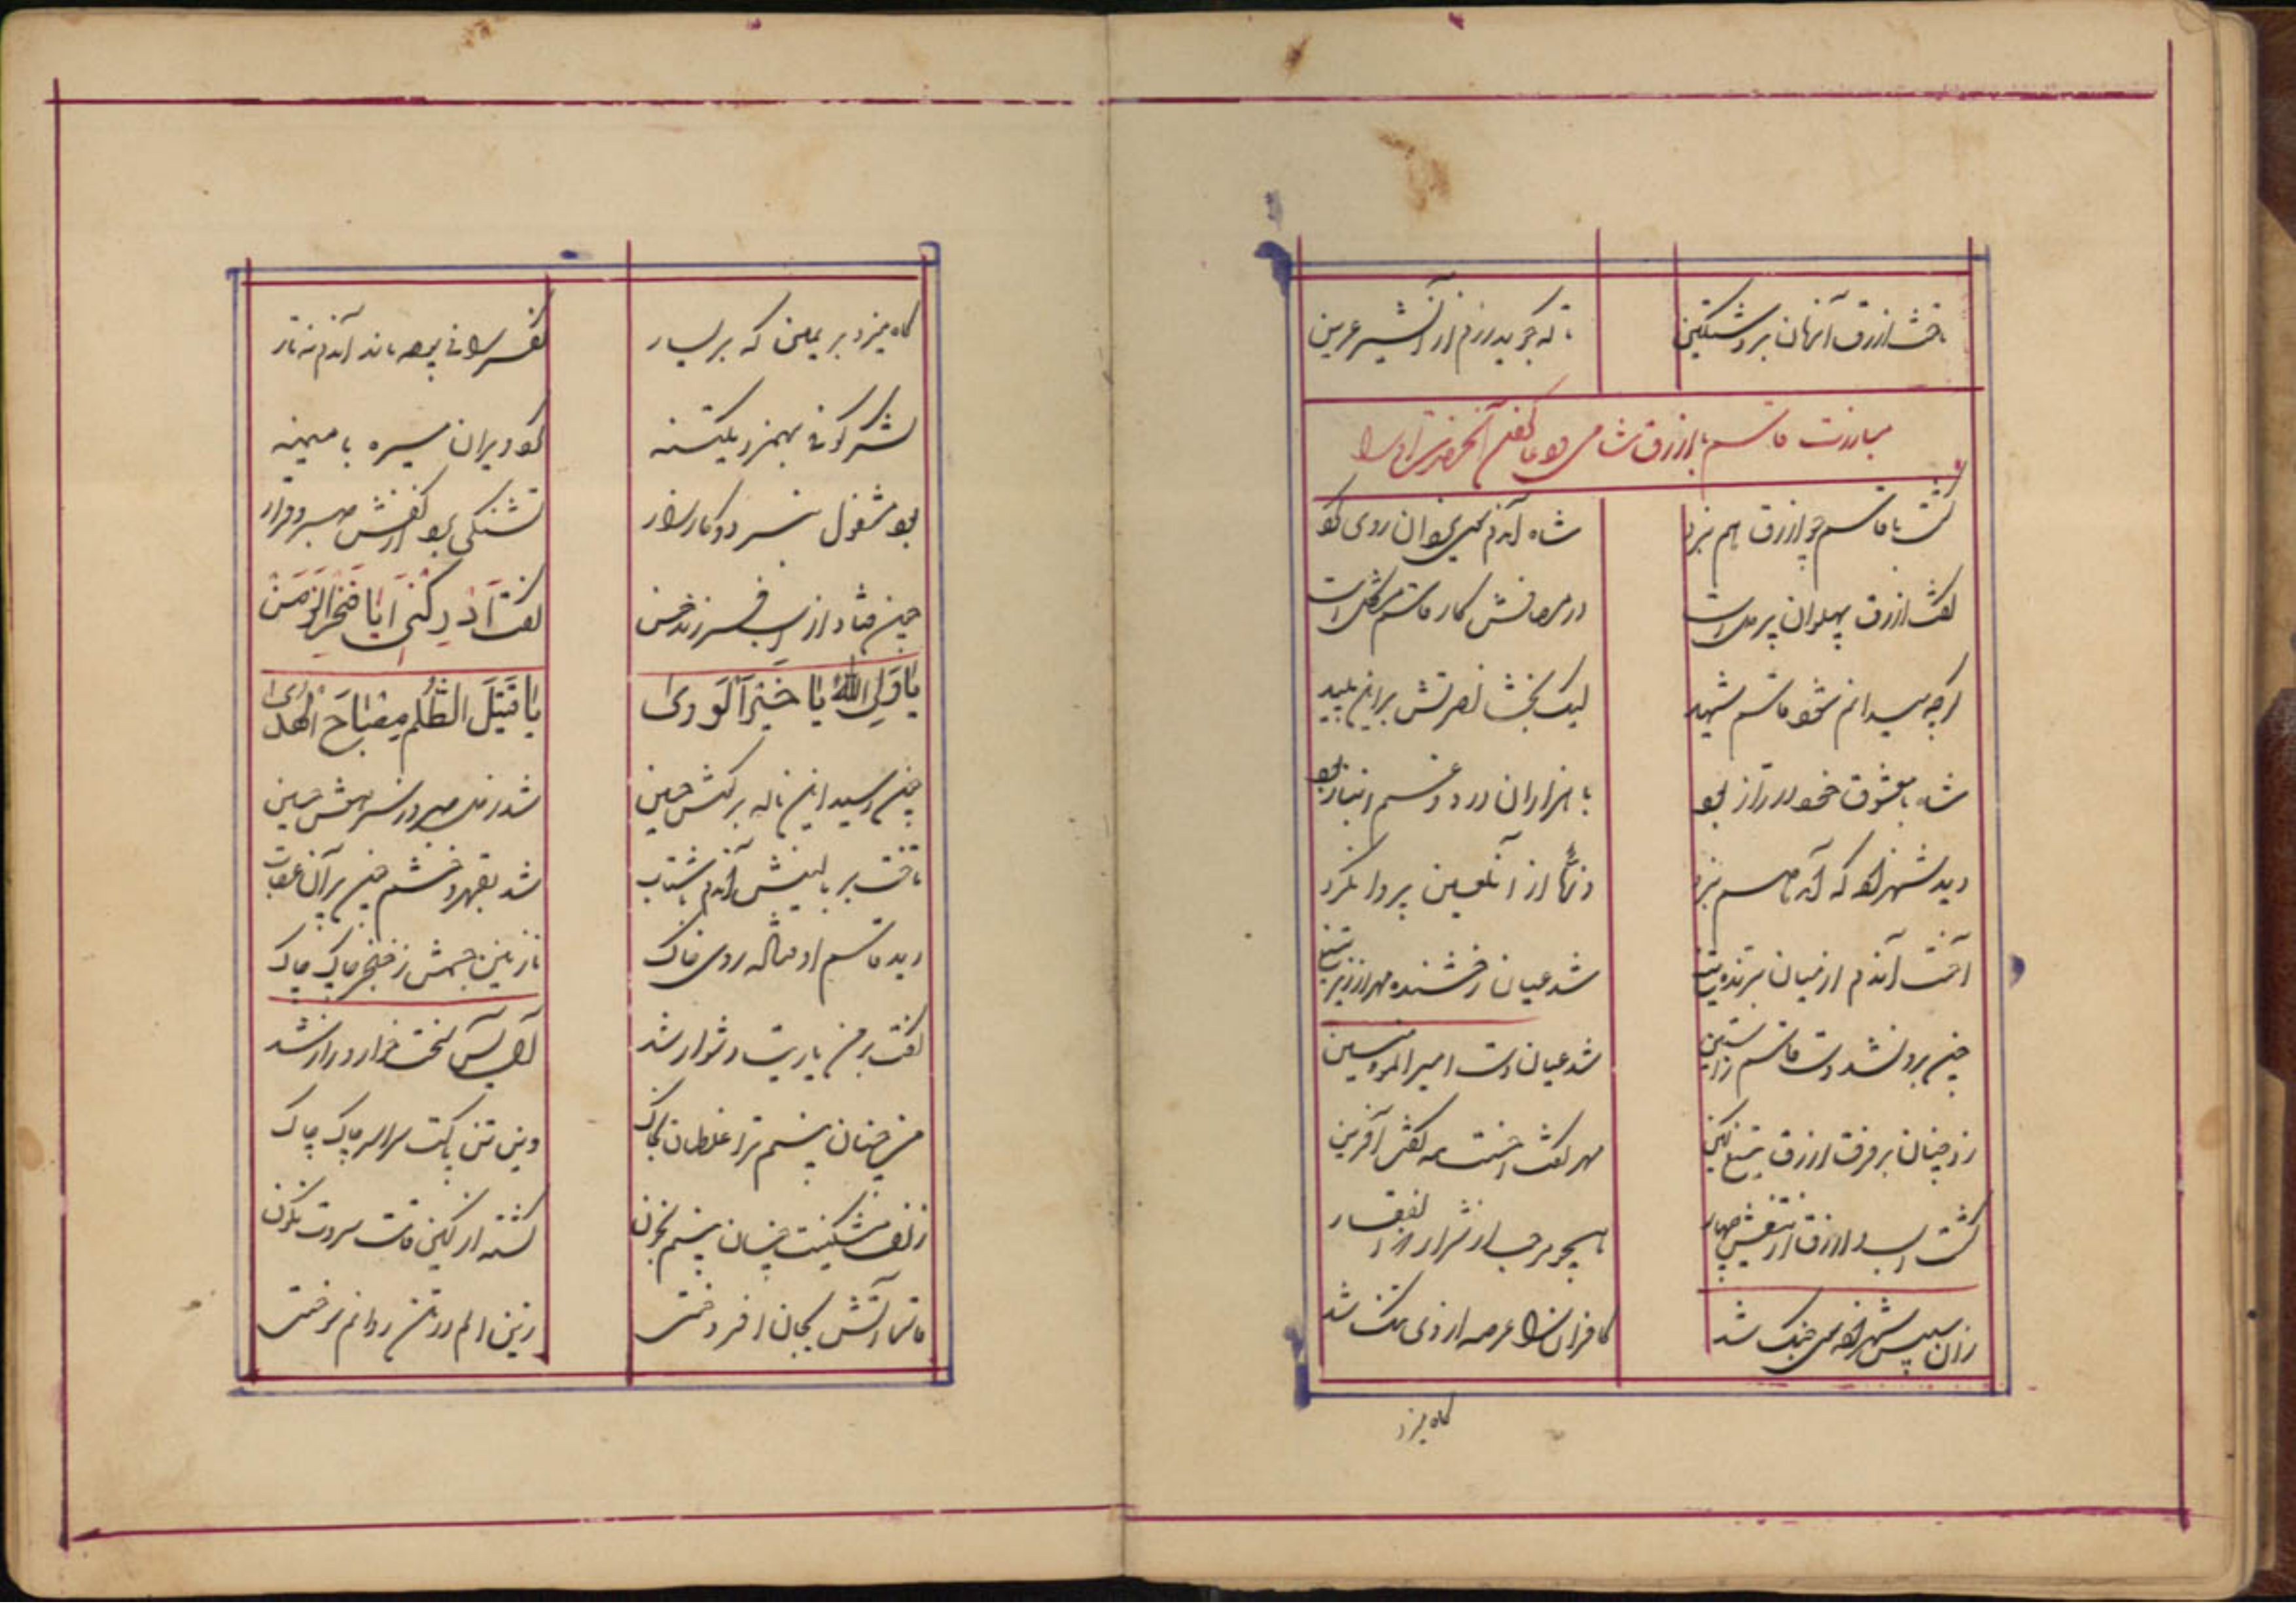 تاخت ازرق آنزمان بر دشت کین
تا که جوید رزم از آن شیر عرین
مبارزت قاسم با ازرق شامی و دعا کفتن آنحضرت او را
کشت با قاسم چو ازرق هم نبرد
شاه آندم سوی یزدان روی کرد
کفت ازرق پهلوان پر دل است
در مصافش کار قاسم مشکل است
ارچه میدانم شود قاسم شهید
لیک بخشا نصرتش بر این پلید
شاه با معشوق خود در راز بود
با هزاران درد و غم انباز بود
دید شهزاده که آمد هم نبرد
از آن لعین پروا نکرد
آخت آندم از میان برنده تیغ
شد عیان رخشنده مهر از زیر میغ
چین بر و شد دست قاسم ز آستین
شد عیان دست امیر المؤمنین
زد چنان بر فرق ازرق تیغ کین
مهر کفت احسنت مه کفت آفرین
کشت اسب و ازرق از تیغش چهار
همچو مرحب از شرار ذوالفقار
زان سپس شهزاده سوی جنک شد
کافران را عرصه از وی تنک شد
کاه میزد
کاه میزد بر یمین که بر یسار
نفس را نی بهره ماند آندم نه تار
لشکر کوفی بهم زد یکتنه
کرد ویران میسره با میمنه
بود مشغول نبرد و کارزار
تشنکی بود از کفش صبر و قرار
چین فتاد از اسب فرزند حسن
کفت اَدْرِکْنی اَیا فَخْرَ الزَّمَنْ
یا وَلِیَّ اللهِ یا خَیْرَ الْوَریٰ
یا قَتیلَ الظُّلْمِ مِصْباحَ الْهُدیٰ
چین رسید این ناله بر کوش حسین
شد ز دل صبر و ز سر هوش حسین
تاخت بر بالینش آندم با شتاب
شد بقهر و خشم چین بر آن عقاب
دید قاسم اوفتاده روی خاک
نازنین جسمش ز خنجر چاک چاک
کفت بر من یاریت دشوار شد
من چسان بینم ترا غلطان بخاک
وین تن پاکت سراسر چاک چاک
زلف مشکینت چسان بینم بخون
کشته از کین قامت سروت نکون
ماتمت آتش بجان افروختی
زین الم در تن روانم سوختی